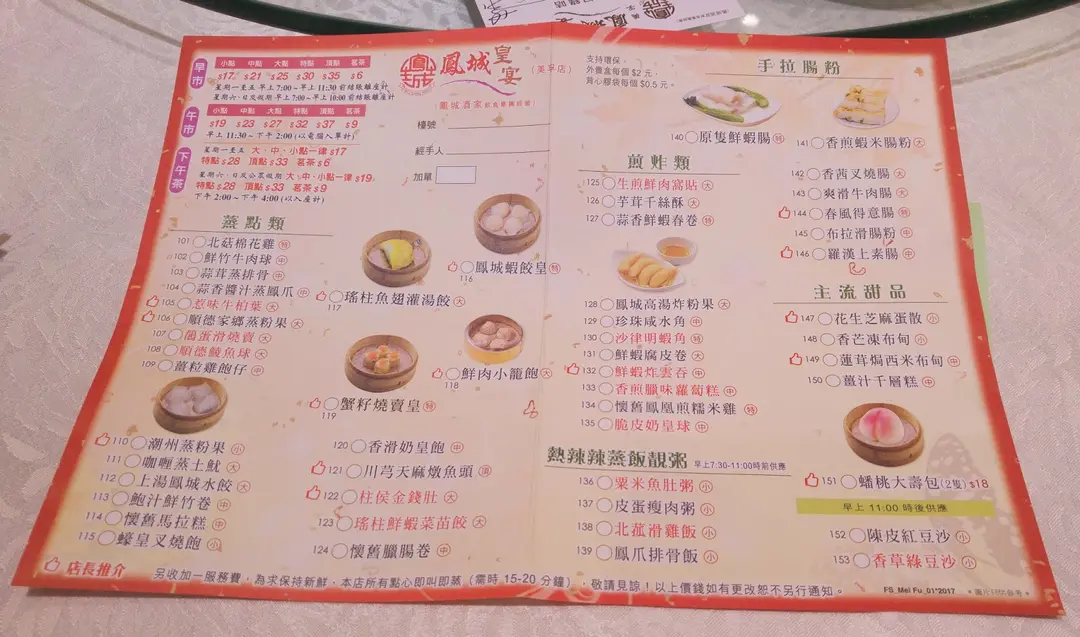 早市
小點 中點 大點 特點 頂點 茗茶
$17 $21 $25 $30 $35 $6
星期一至五 早上7:00~早上11:30前結賬離座計
星期六、日及假期 早上7:00~早上10:00前結賬離座計
午市
小點 中點 大點 特點 頂點 茗茶
$19 $23 $27 $32 $37 $9
早上11:30~下午2:00(以電腦入單計)
下午茶
星期一至五 大、中、小點一律 $17
特點 $28 頂點 $33 茗茶 $6
星期六、日及公眾假期 大、中、小點一律 $19
特點 $28 頂點 $33 茗茶 $9
下午2:00~下午4:00(以入座計)
鳳城
鳳城皇宴
(美孚店)
鳳城酒家
檯號
經手人
加單
支持環保,
外賣盒每個 $2 元,
背心膠袋每個 $0.5 元。
蒸點類
101 北菇棉花雞 特
102 鮮竹牛肉球 中
103 蒜茸蒸排骨 中
104 蒜香醬汁蒸鳳爪 中
105 惹味牛柏葉 大
106 順德家鄉蒸粉果 大
107 鵪蛋滑燒賣 大
108 順德鯪魚球 大
109 薑粒雞飽仔 中
110 潮州蒸粉果 小
111 咖喱蒸土魷 大
112 上湯鳳城水餃 大
113 鮑汁鮮竹卷 中
114 懷舊馬拉糕 中
115 蠔皇叉燒飽 小
鳳城蝦餃皇 特
116
瑤柱魚翅灌湯餃 大
117
鮮肉小籠飽 大
118
蟹籽燒賣皇 特
119
120 香滑奶皇飽 中
121 川芎天麻燉魚頭 頂
122 柱侯金錢肚 大
123 瑤柱鮮蝦菜苗餃 大
124 懷舊臘腸卷 中
煎炸類
125 生煎鮮肉窩貼 大
126 芋茸千絲酥 大
127 蒜香鮮蝦春卷 特
128 鳳城高湯炸粉果 大
129 珍珠咸水角 中
130 沙律明蝦角 特
131 鮮蝦腐皮卷 大
132 鮮蝦炸雲吞 中
133 香煎臘味蘿蔔糕 中
134 懷舊鳳凰煎糯米雞 特
135 脆皮奶皇球 中
熱辣辣蒸飯靚粥 早上7:30-11:00時前供應
136 粟米魚肚粥 小
137 皮蛋瘦肉粥 小
138 北菰滑雞飯 小
139 鳳爪排骨飯 小
手拉腸粉
140 原隻鮮蝦腸 特
141 香煎蝦米腸粉 大
142 香茜叉燒腸 大
143 爽滑牛肉腸 大
144 春風得意腸 特
145 布拉滑腸粉 中
146 羅漢上素腸 中
主流甜品
147 花生芝麻蛋散 小
148 香芒凍布甸 小
149 蓮茸焗西米布甸 中
150 薑汁千層糕 中
151 蟠桃大壽包(2隻) $18
早上 11:00 時後供應
152 陳皮紅豆沙 小
153 香草綠豆沙 小
店長推介
另收加一服務費,為求保持新鮮,本店所有點心即叫即蒸(需時 15-20 分鐘),敬請見諒!以上價錢如有更改恕不另行通知。
FS_Mei Fu_01*2017
*圖片只供參考*